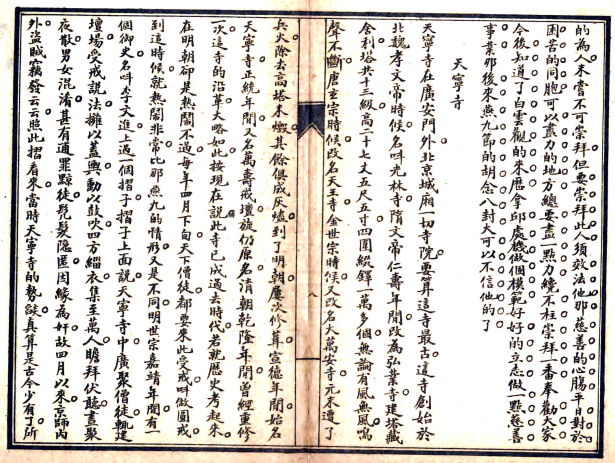 的為人未嘗不可崇拜但要崇拜此人須效法他那慈善的心腸平日對於
困苦的同胞可以盡力的地方總要盡一點力纔不枉崇拜一番奉勸大家
今後知道了白雲觀的來歷拿邱處機做個模範好好的立志做一點慈善
事業那後來燕九節的胡念八封大可以不信他的了
天寧寺
天寧寺在廣安門外北京城廂一切寺院要算這寺最古這寺創始於
北魏孝文帝時候名叫光林寺隋文帝仁壽年間改為弘業寺建塔藏
舍利塔共十三級高二十七丈五尺五寸四圍綴鐸一萬多個無論有風無風鳴
聲不斷唐玄宗時候改名天王寺金世宗時候又改名大萬安寺元末遭了
八
兵火除去高塔未燬其餘俱成灰燼到了明朝屢次修葺宣德年間始名
天寧寺正統年間又名萬壽戒壇旋仍原名清朝乾隆年間曾經重修
一次這寺的沿革大略如此按現在說此寺已成過去時代若就歷史考起來
在明朝卻是熱鬧不過每年四月下旬天下僧徒都要來此受戒叫做圓戒
到這時候就熱鬧非常比那燕九的情形又是不同明世宗嘉靖年間有一
個御史名叫李文進上過一個摺子摺子上面說天寧寺中廣聚僧徒輒建
壇場受戒說法擁以蓋輿動以鼓吹四方緇衣集至萬人瞻拜伏聽晝聚
夜散男女混淆甚有逋罪黥徒髡髮隱匿因緣為奸故四月以來京師內
外盜賊竊發云云照此摺看來當時天寧寺的勢燄真算是古今少有了所